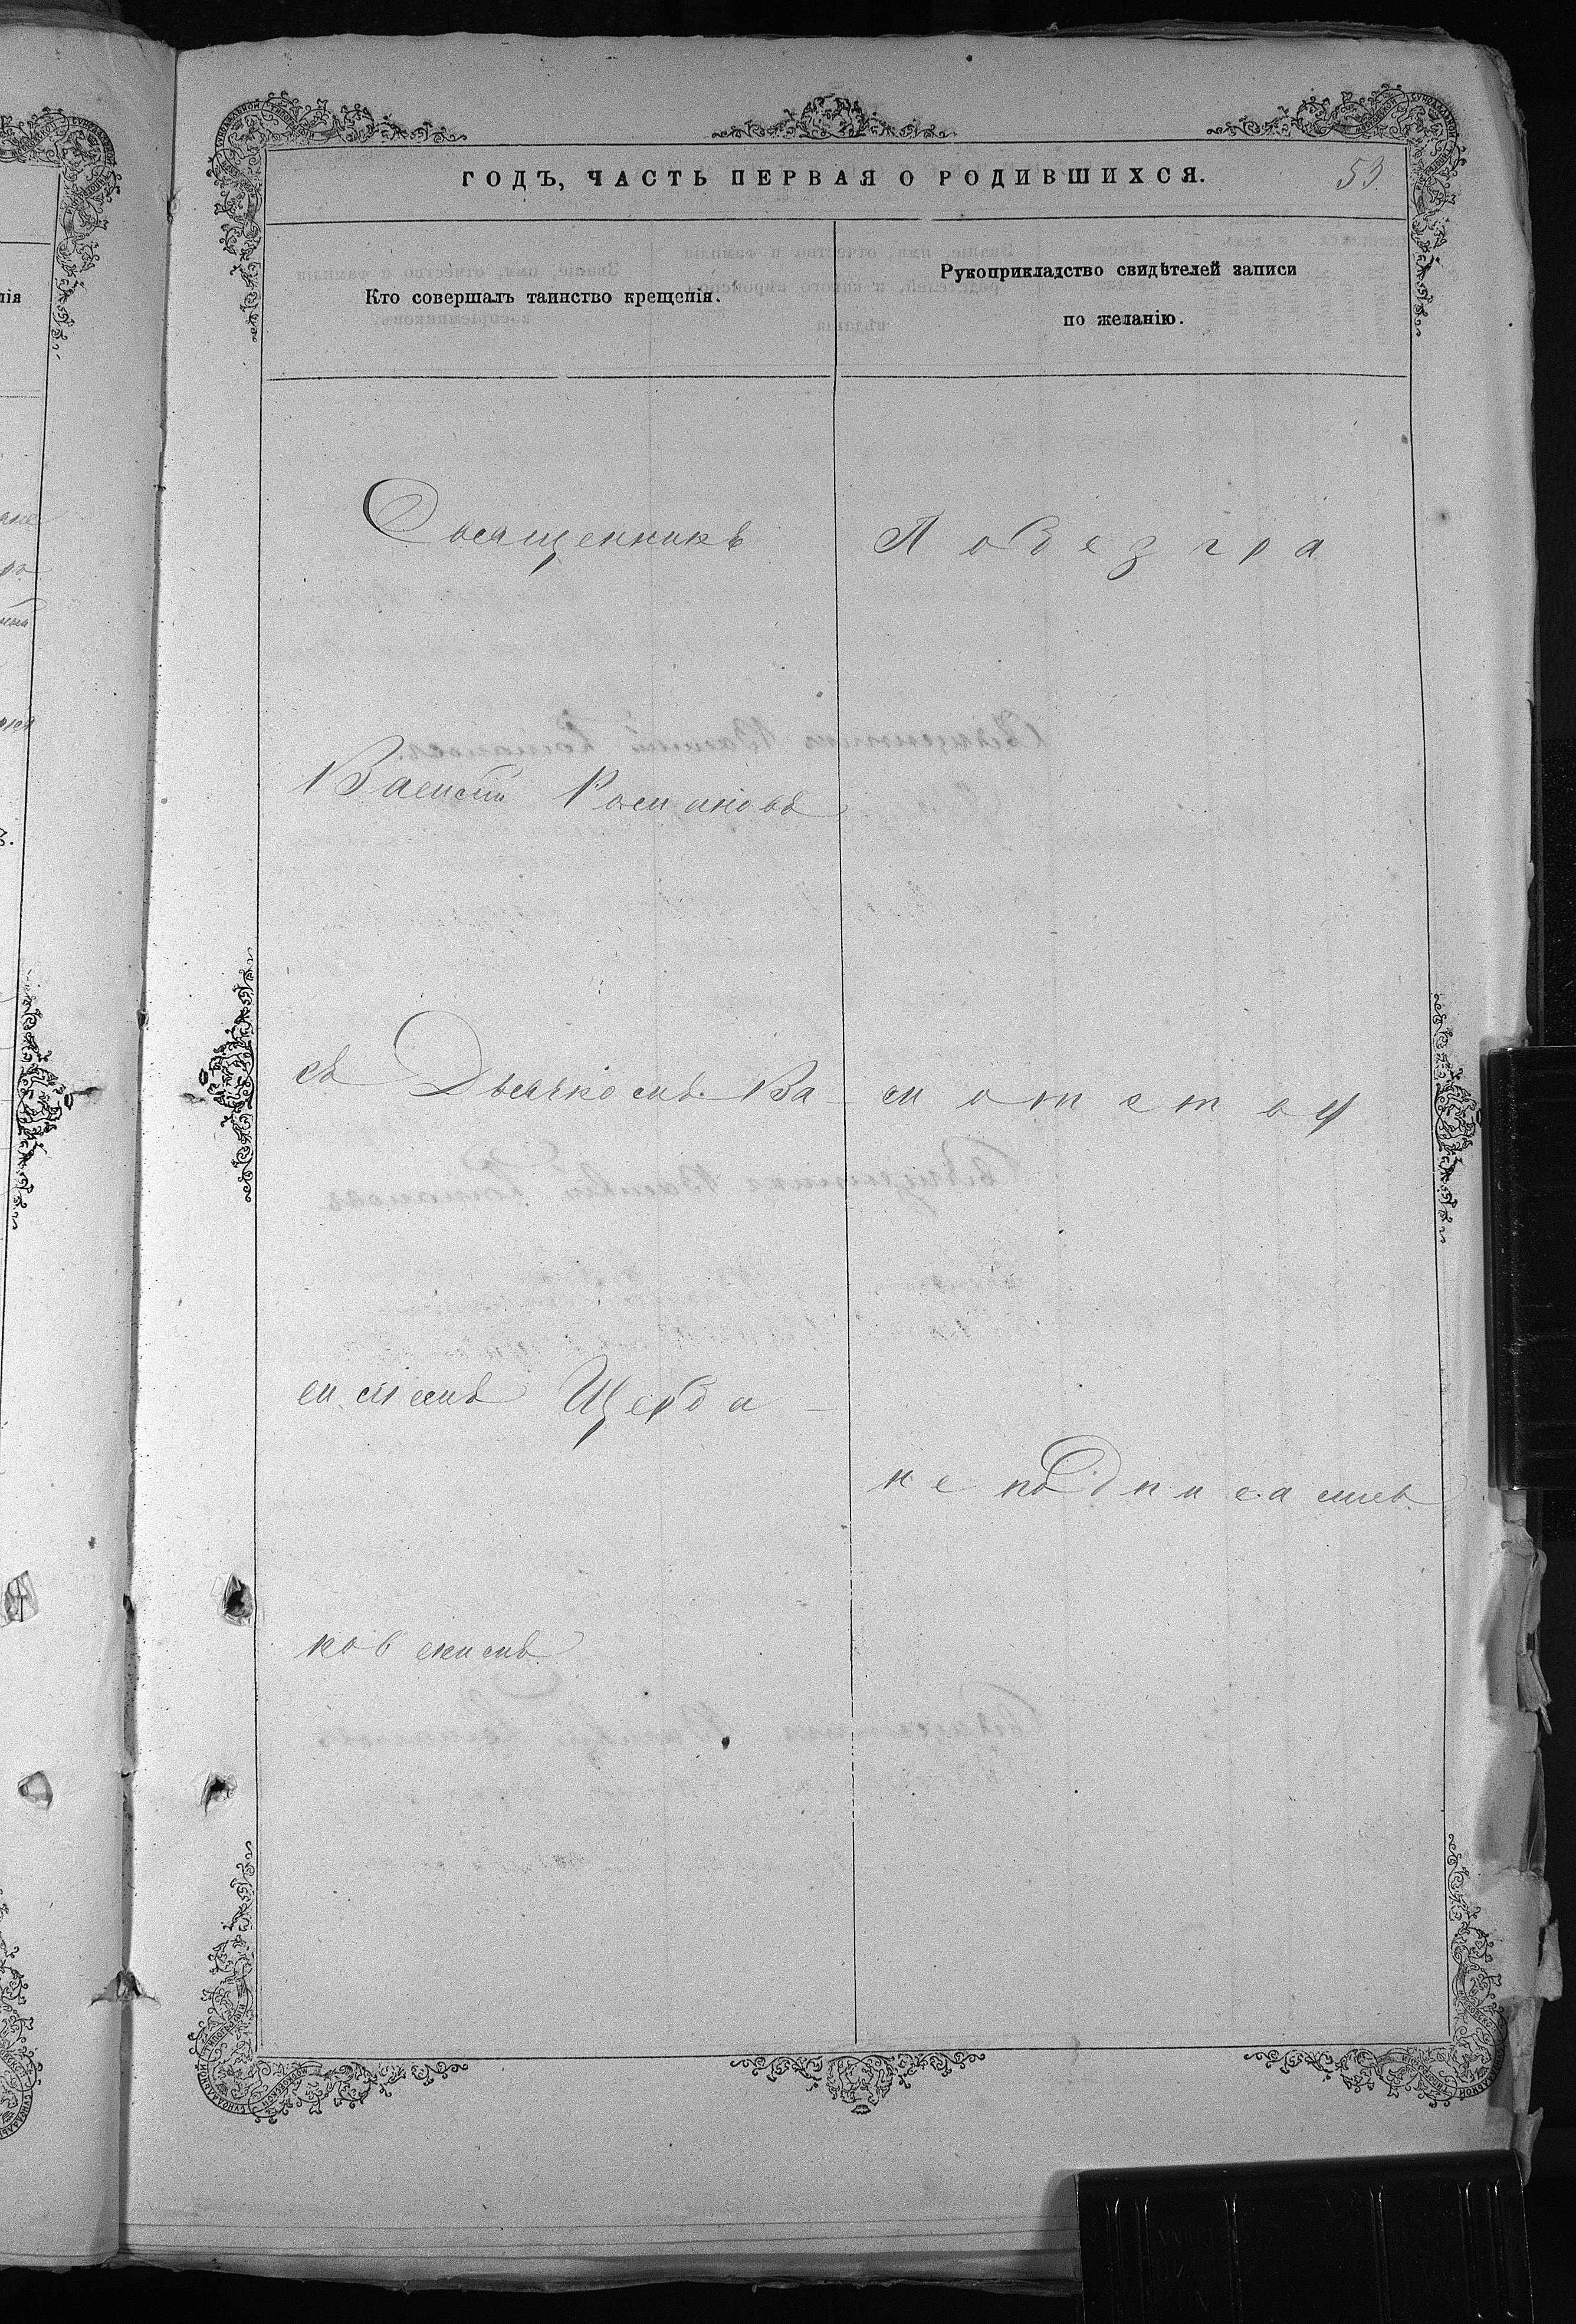 ГОДЪ, ЧАСТЬ ПЕРВАЯ О РОДИВШИХСЯ.
53
Кто совершалъ таинство крещенія.
Рукоприкладство свидѣтелей записи
по желанію.
Священникъ
Василій Романовъ
съ Дьячкомъ Ва-
силіемъ Щерба-
ковскимъ
По безгра
мотству
не подписались